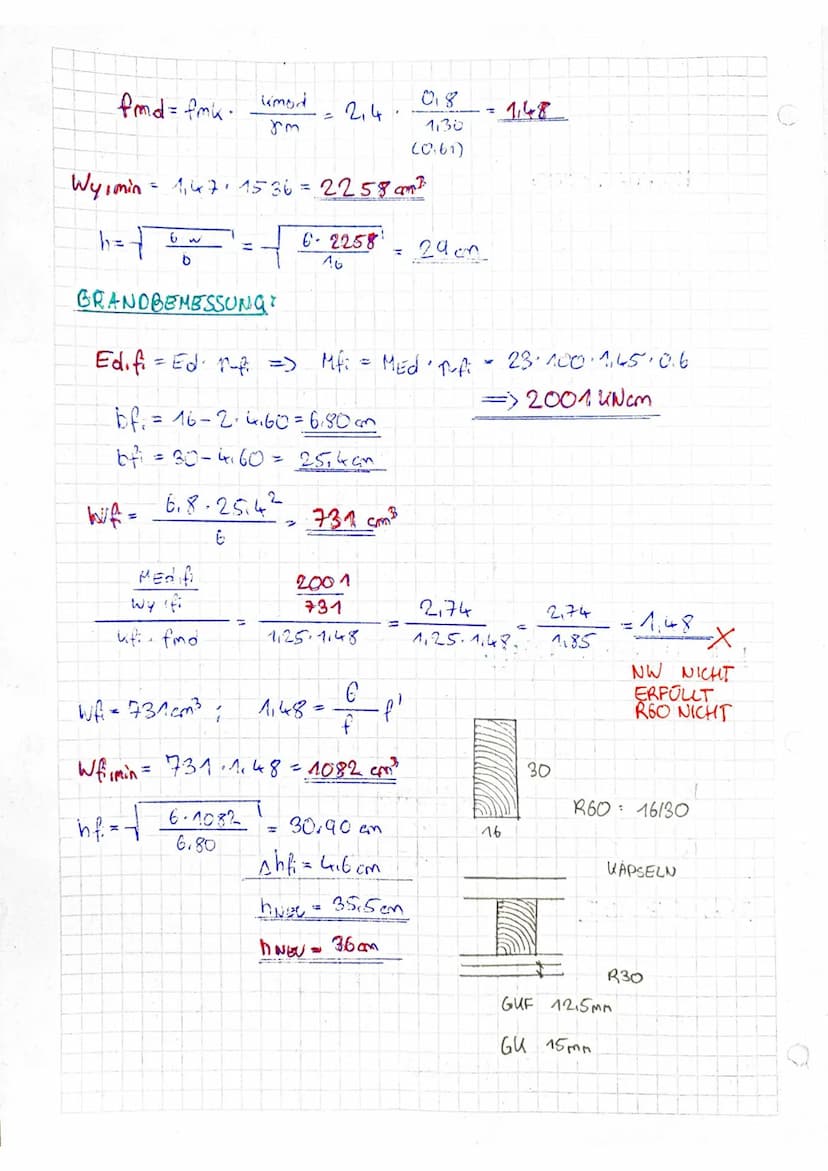 fmd = fmk · kmod / γm = 2,4 · 0,8 / 1,30 = 1,48
(0,61)
Wy,min = 1,47 · 1536 = 2258 cm³
h = √(6·w / b) = √(6 · 2258 / 16) = 29 cm
BRANDBEMESSUNG:
Ed,fi = Ed · ηfi => Mfi = MEd · ηfi = 23·100·1,45·0,6
=> 2001 kNcm
bfi = 16 - 2·4,60 = 6,80 cm
bfi = 30 - 4,60 = 25,4 cm
Wfi = 6,8 · 25,4² / 6 = 731 cm³
(MEd,fi / Wy,fi) / (kfi · fmd) = (2001 / 731) / (1,25 · 1,48) = 2,74 / (1,25 · 1,48) = 2,74 / 1,85 = 1,48 X
NW NICHT
ERFÜLLT
R60 NICHT
Wfi = 731 cm³ ; 1,48 = 6 / f
Wfi,min = 731 · 1,48 = 1082 cm³
hfi = √(6 · 1082 / 6,80) = 30,90 cm
Δhfi = 4,6 cm
hNEU = 35,5 cm
hNEU = 36 cm
30
16
R60 : 16/30
KAPSELN
R30
GKF 12,5mm
GK 15mm